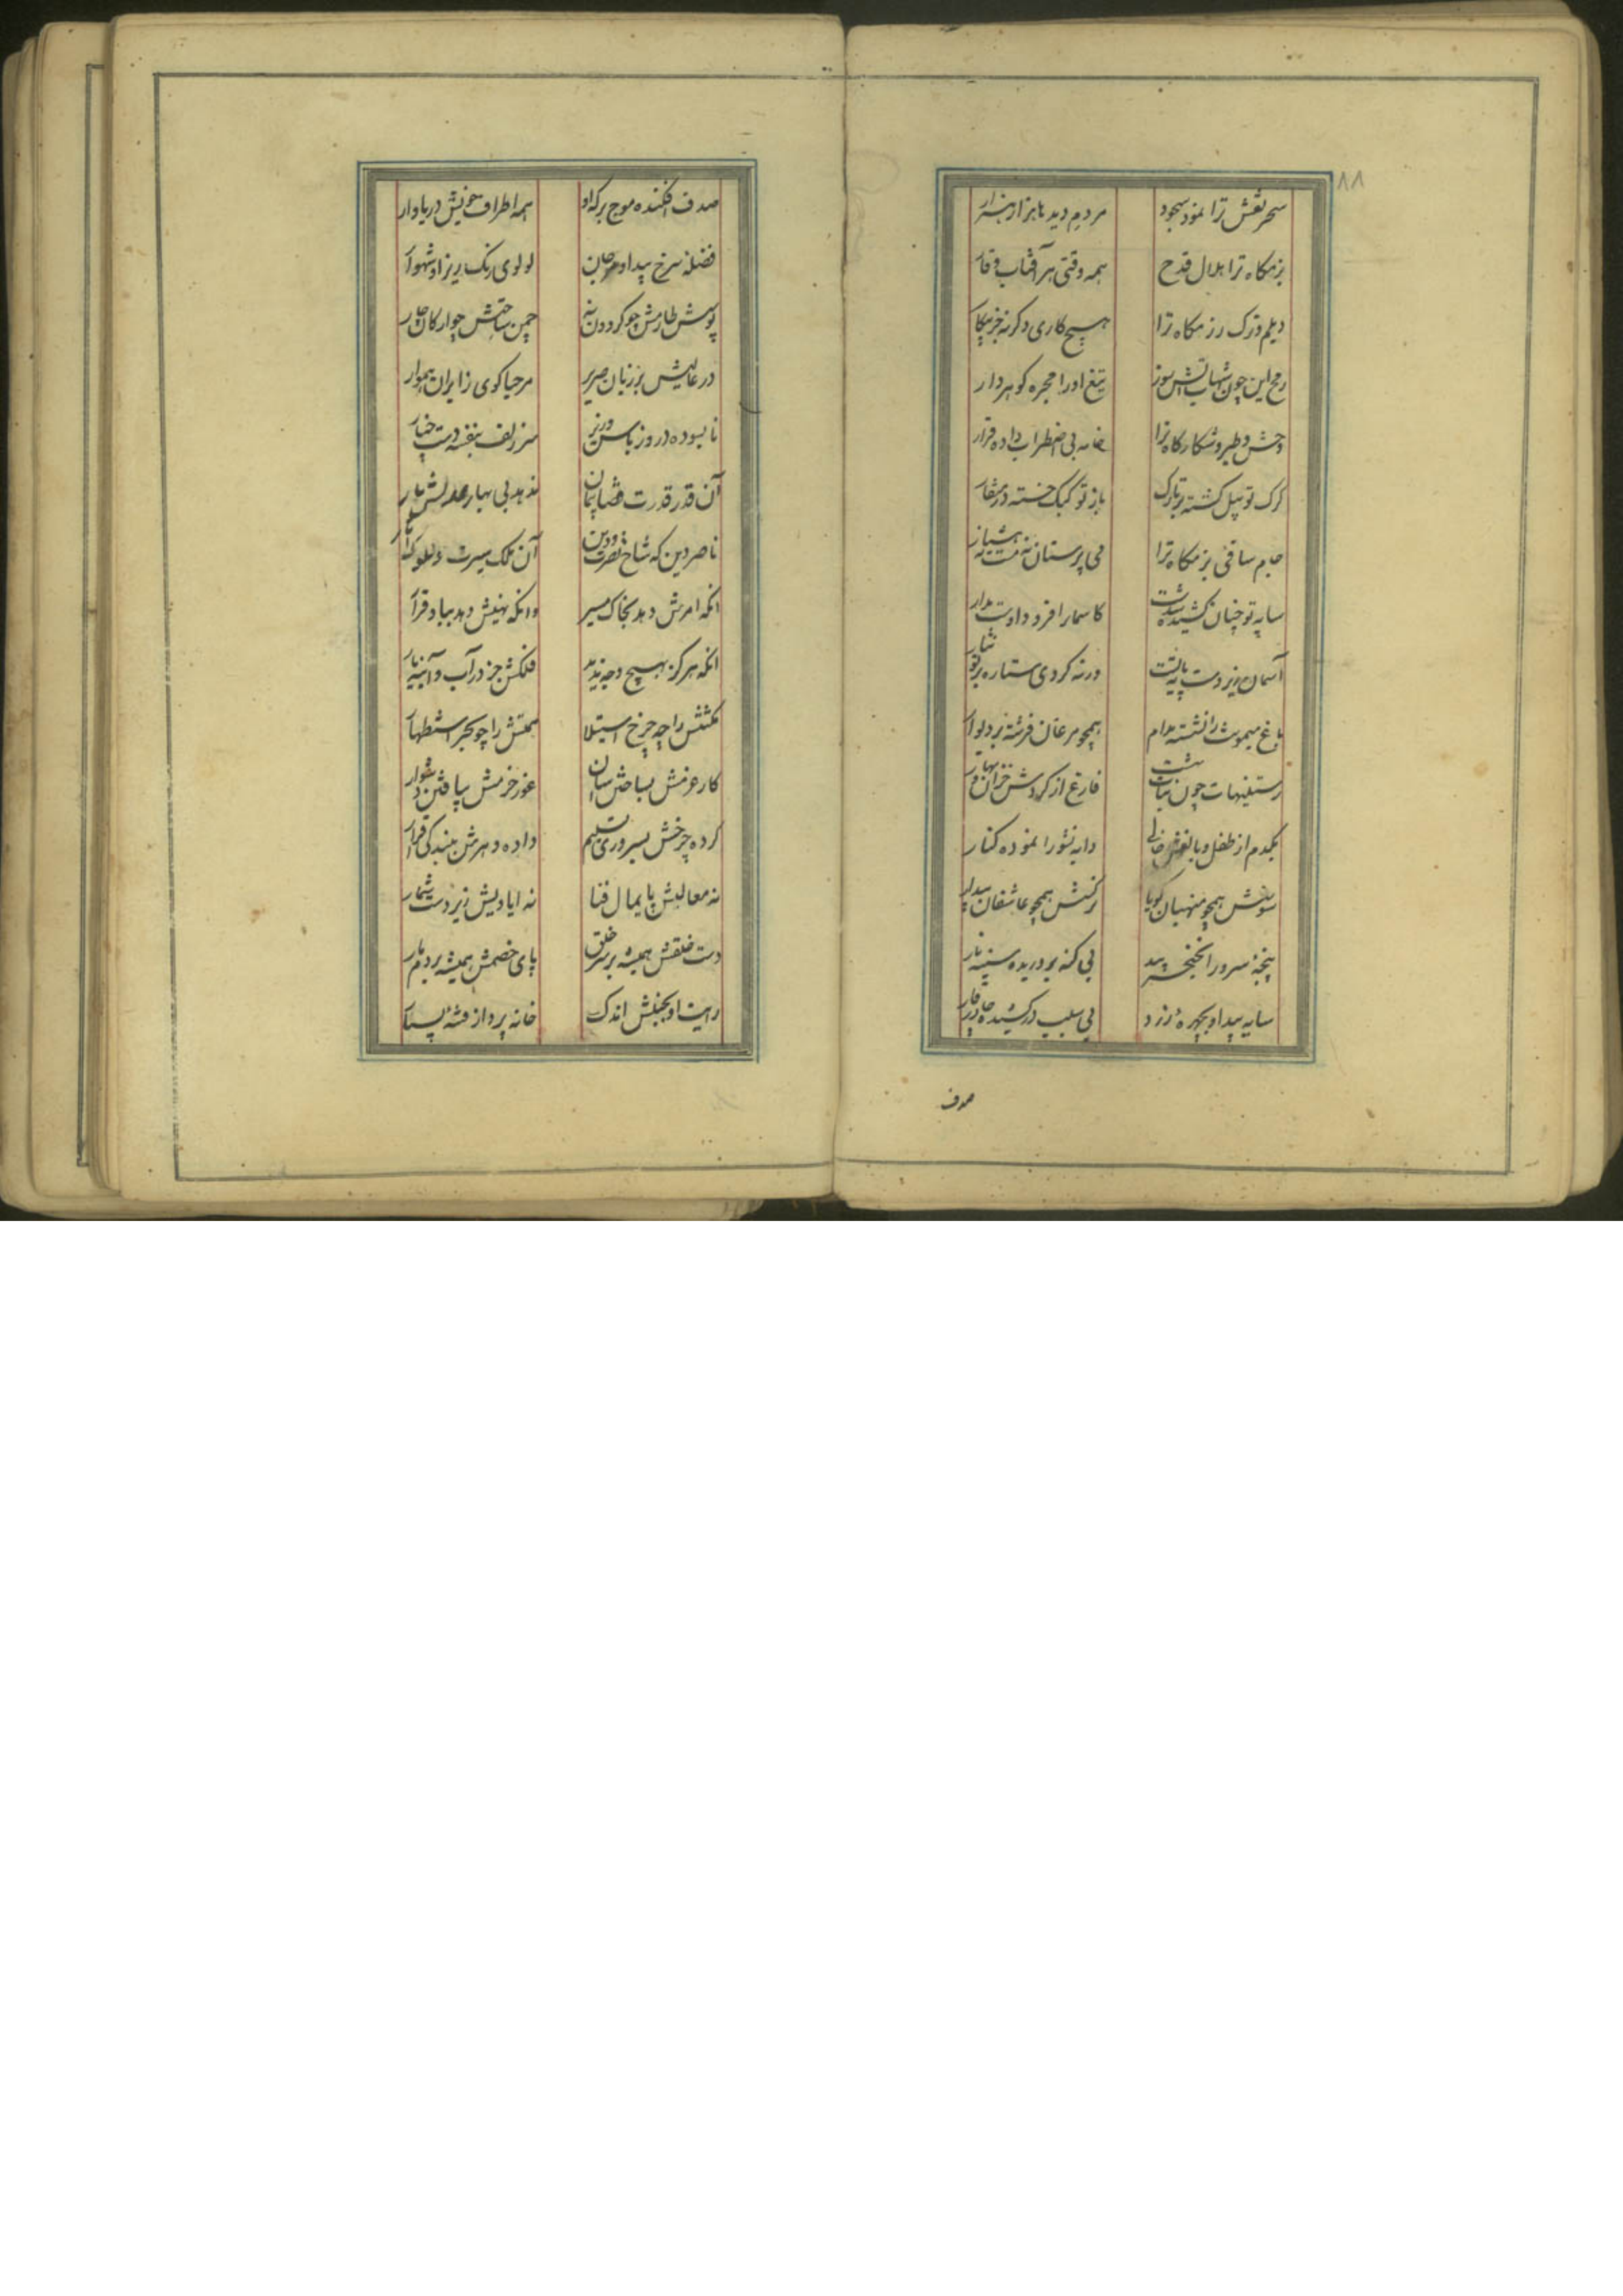 ۸۸
سحر نقش ترا نمود سجود مردم دیده با هزار هزار
بزمکاه ترا هلال قدح همه وقتی بر آفتاب وقار
دیلم و ترک رزمکاه ترا هیچ کاری دکر نه جز پیکار
رمح این چون شهاب آتش سوز تیغ او را مجره کوهردار
وحش و طیر شکارکاه ترا خامه بی اضطراب داده قرار
کرک تو پیل کشته بر تارک باز تو کبک خسته در منقار
جام ساقی بزمکاه ترا می پرستان نه مست و نه هشیار
سایه تو چنان کشیده شدست کاسمان را فرود اوست مدار
آسمان زیردست پایه تست ورنه کردی ستاره بر تو نثار
باغ میمونت را نشسته مدام همچو مرغان فرشته بر دیوار
رستنیهات چون نبات بهشت فارغ از کردش خزان و بهار
یکدم از طفل و بالغش خالی دایه نشو را نبوده کنار
سوسنش همچو منهیان کویا نرکسش همچو عاشقان بیدار
پنجه سرو را بخنجر بید بی کنه بر دریده سینه نار
سایه بید او بچهره زرد بی سلب درکشیده چادر قار
صدف
صدف افکنده موج برکه او همه اطراف خویش دریاوار
فضله سرخ بید او مرجان لولوی رنک ریز او شهوار
پوشش طارمش چو کردون نه چمن ساحتش چو ارکان چار
در عالیش بر زبان صریر مرحبا کوی زایران هموار
نابسوده در وز باس وزیر سر زلف بنفشه دست چنار
آن قدر قدرت قضا پیمان ندهد بی بهار عدلش بار
ناصر دین که شاخ نصرت و دین آن ملک سیرت و ملوک
آنکه امرش دهد بخاک مسیر وانکه نهیش دهد بباد قرار
آنکه هرکز بهیچ وجه ندید فلکش جز در آب و آینه یار
مکنتش را چه چرخ استیلا همتش را چو بحر استظهار
کار عزمش بساختن آسان غور حزمش بیافتن دشوار
کرده چرخش بسروری تسلیم داده دهرش ببندکی اقرار
نه معالیش پایمال فنا نه ایادیش زیردست شمار
دست خلقش همیشه بر سر خلق پای خصمش همیشه بر دم مار
رایت او بجنبش اندک خانه پرداز فتنه بسیار